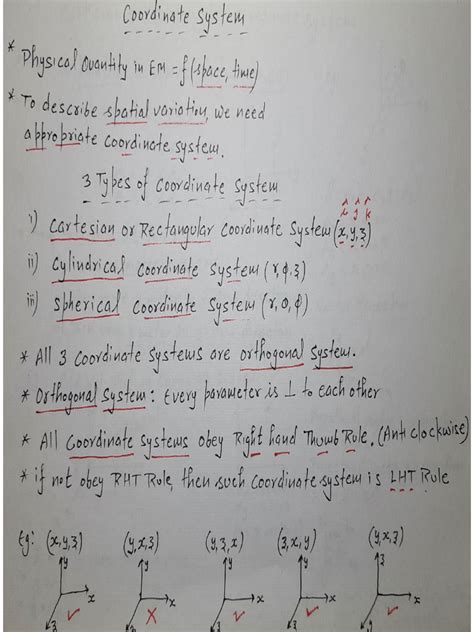 Coordinate System
* Physical Quantity in EM = f(space, time)
* To describe spatial variation, we need
appropriate coordinate system.
3 Types of Coordinate System
î ĵ k̂
i) Cartesian or Rectangular Coordinate System (x,y,z)
ii) Cylindrical Coordinate System (r,ϕ,z)
iii) Spherical Coordinate System (r,θ,ϕ)
* All 3 Coordinate Systems are orthogonal System.
* Orthogonal System : Every parameter is ⊥ to each other
* All Coordinate Systems obey Right hand Thumb Rule. (Anti clockwise)
* if not obey RHT Rule, then such Coordinate system is LHT Rule
Eg: (x,y,z) (y,x,z) (y,z,x) (z,x,y) (y,x,z)
y y y y z
x x x x x
z z z z y
✓ ✗ ✓ ✓ ✓